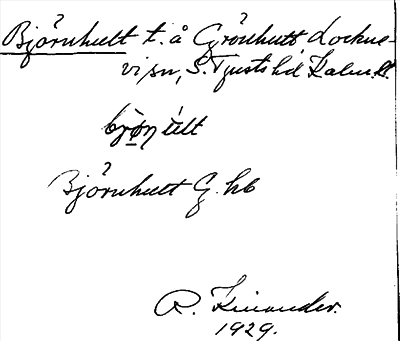 Björnhult t. å Grönhult Lockne-
vi sn, S. Tjusts hd Kalm. l.
bjø̀ṇult
Björnhult G. hb
R. Kinander.
1929.